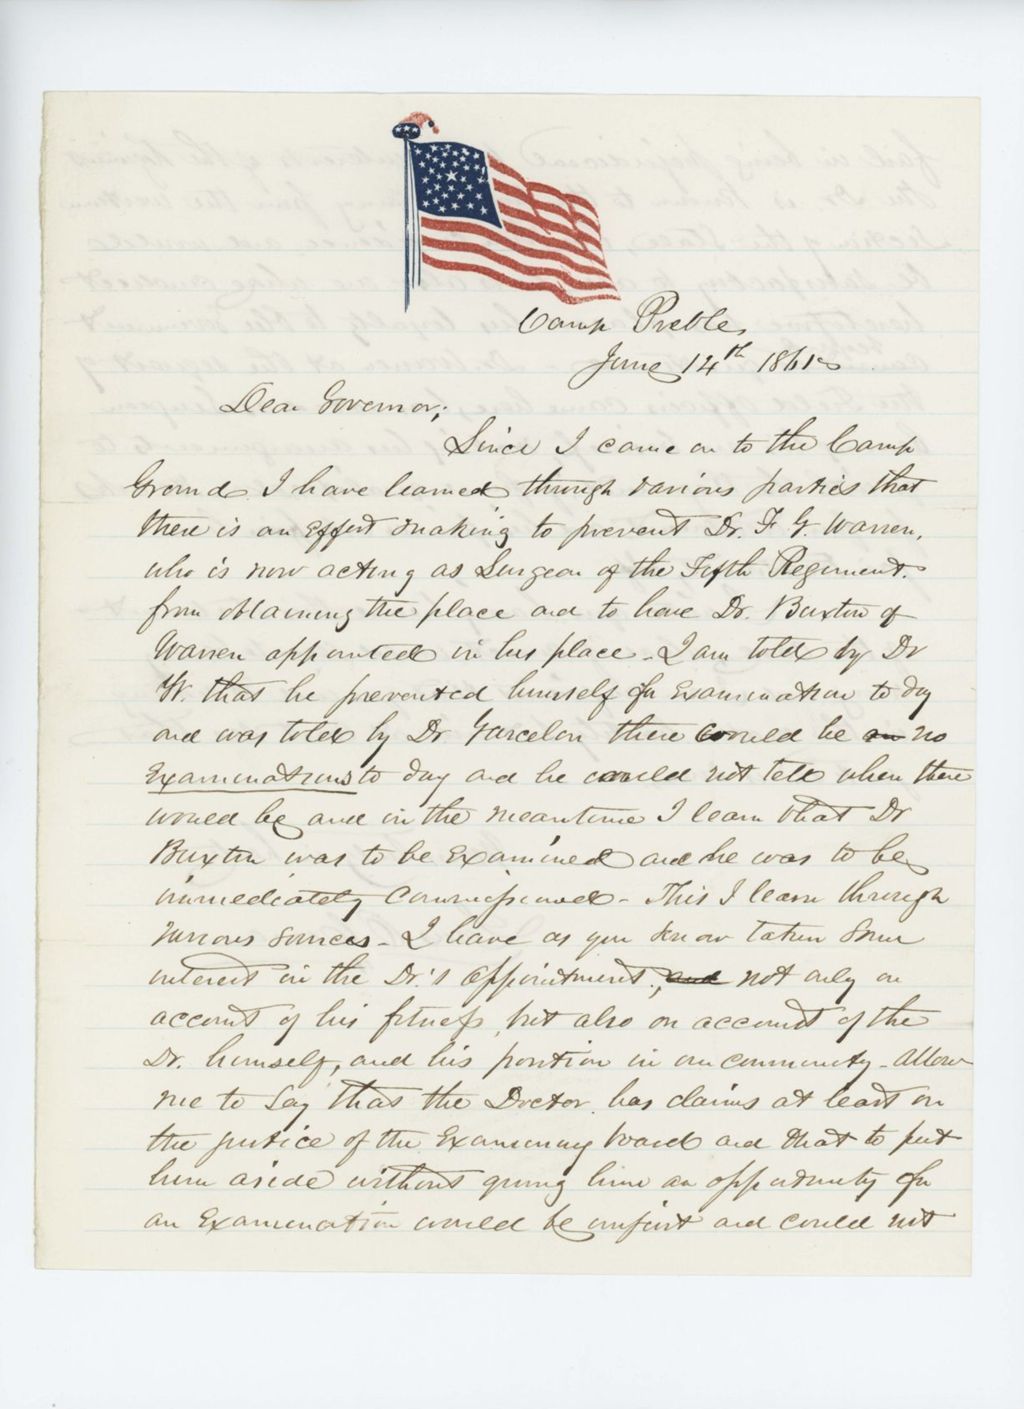 Camp Preble,
June 14th 1861
Dear Governor;
Since I came on to the Camp
Ground I have learned through various parties that
there is an effort making to prevent Dr. F. G. Warren,
who is now acting as Surgeon of the Fifth Regiment.
from obtaining the place and to have Dr. Buxton of
Warren appointed in his place - I am told by Dr
W. that he presented himself for Examination to day
and was told by Dr Garcelon there would be an no
Examinations to day and he could not tell when there
would be, and in the meantime I learn that Dr
Buxton was to be Examined and he was to be
immediately Commissioned - This I learn through
various sources - I have as you know taken some
interest in the Dr.'s appointment, and not only on
account of his fitness, but also on account of the
Dr. himself, and his position in our community - Allow
me to say that the Doctor has claims at least on
the justice of the Examining board and that to put
him aside without giving him an opportunity for
an Examination would be unjust and could not